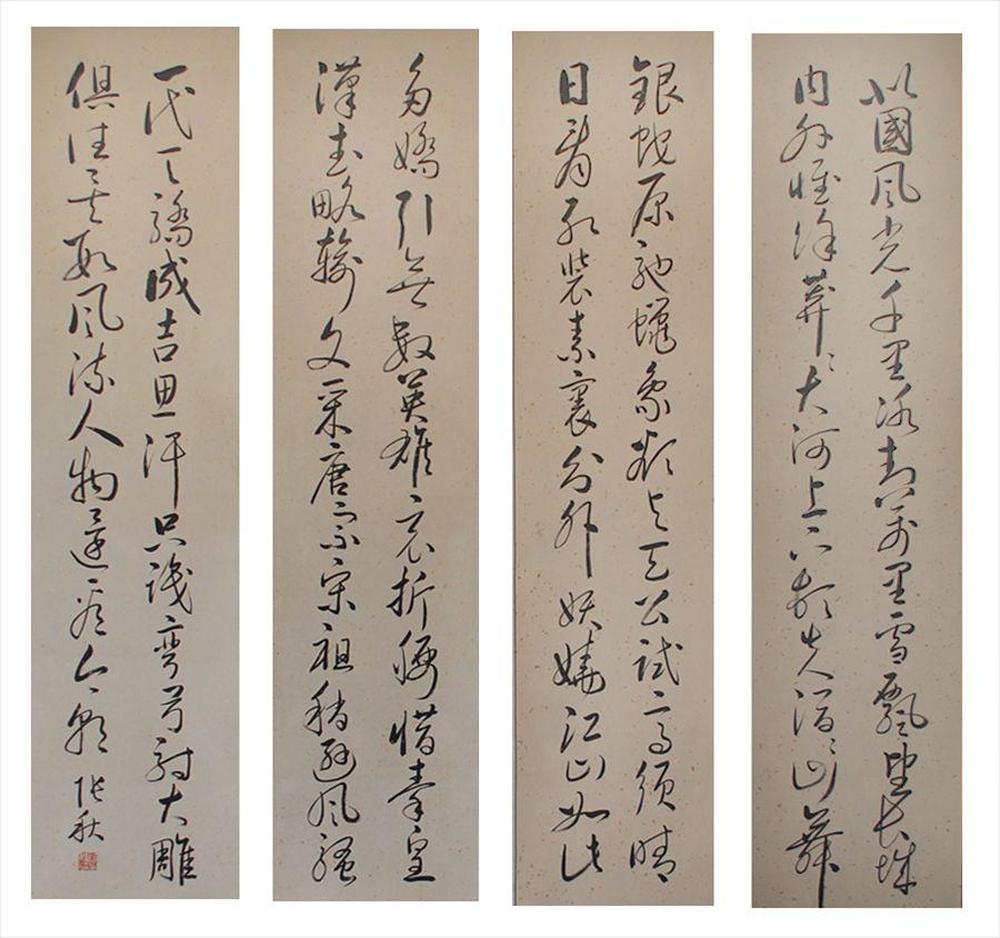 北國風光千里冰封萬里雪飄望長城
内外惟餘莽〻大河上下頓失滔〻山舞
銀蛇原馳蠟象欲與天公試比高須晴
日看紅裝素裹分外妖嬈江山如此
多嬌引無數英雄競折腰惜秦皇
漢武略輸文采唐宗宋祖稍遜風騷
一代天驕成吉思汗只識彎弓射大雕
俱往矣數風流人物還看今朝 張秋